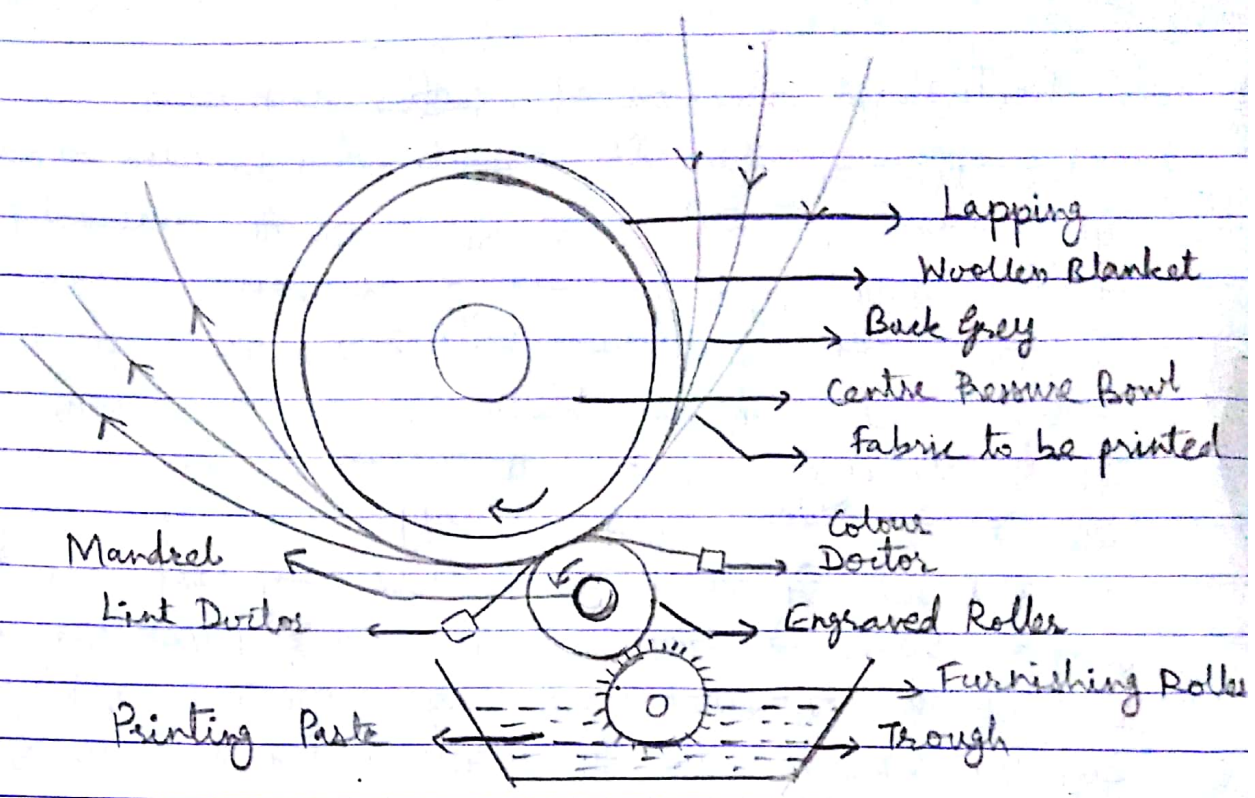 Lapping
Woollen Blanket
Back Grey
Centre Pressure Bowl
Fabric to be printed
Colour
Doctor
Mandrel
Lint Doctor
Engraved Roller
Furnishing Roller
Printing Paste
Trough